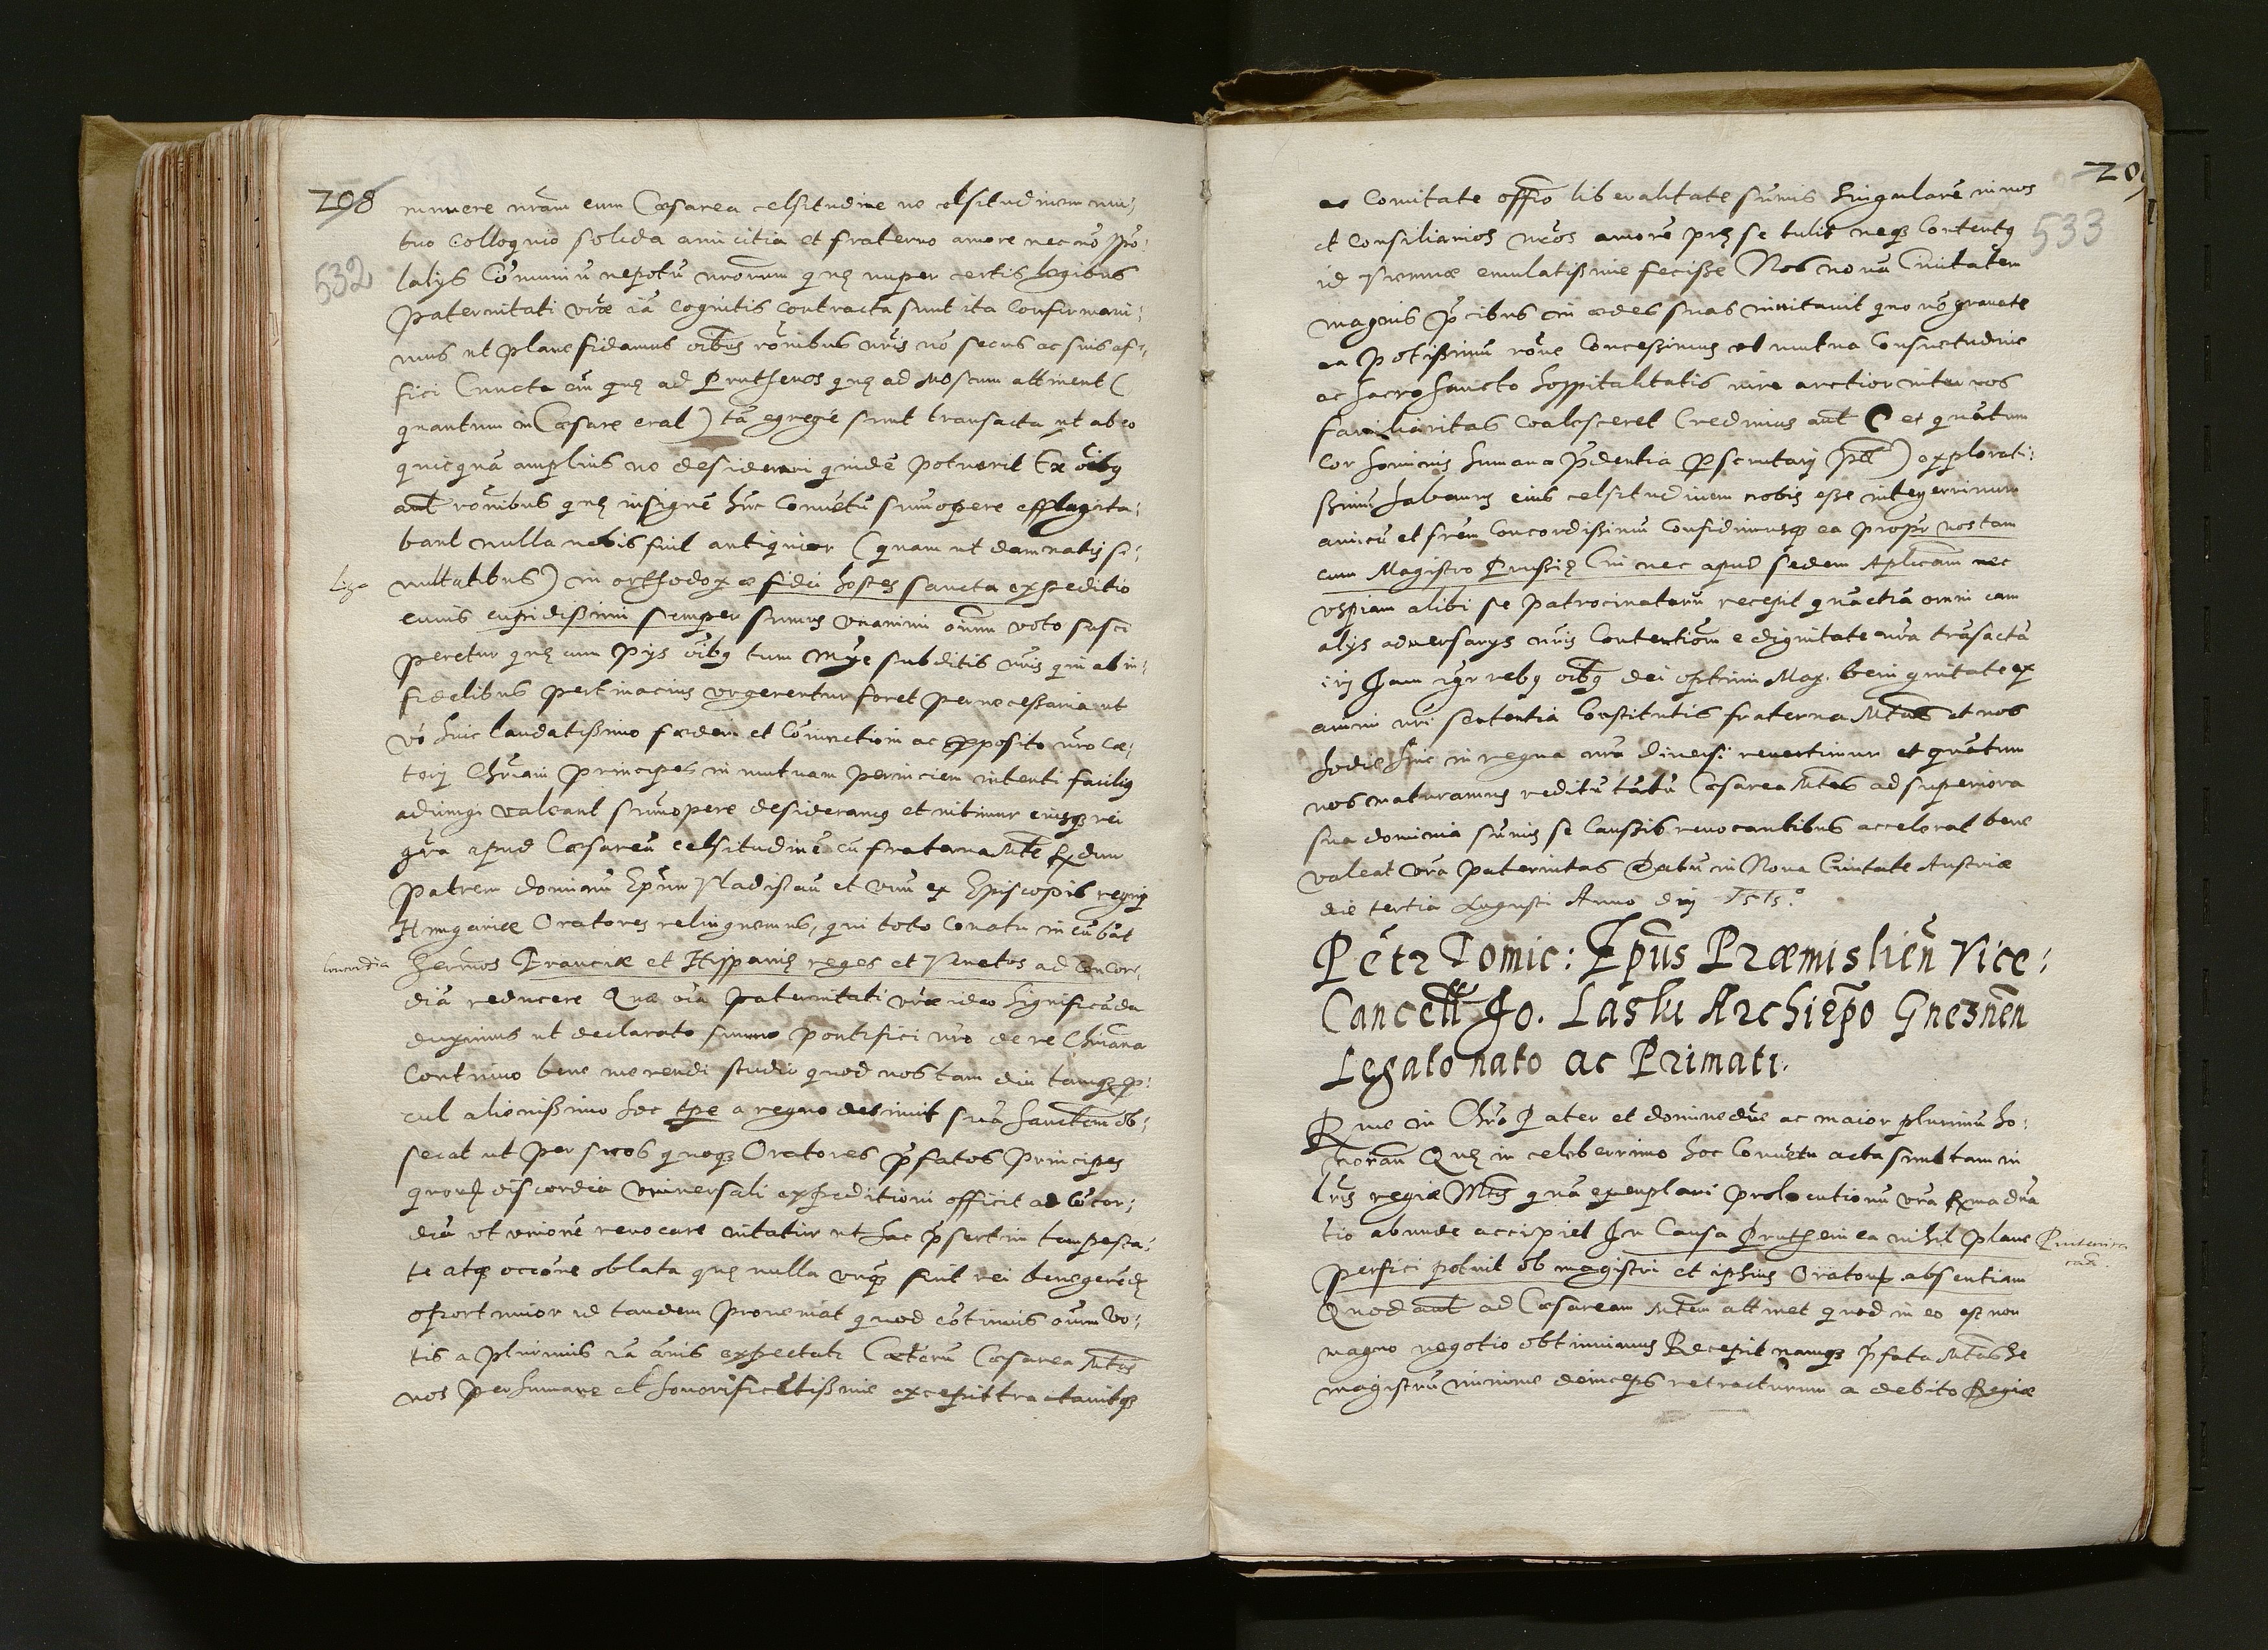 208
532
nuere nr̃am cum Cæsarea celsitudine ne celsitudinem mu-
tuo Colloquio solida amicitia et fraterno amore nec nõ
talys Cõmuniũ nepotũ nrorum quę nuper certis legibus
paternitati vr̃æ iã cognitis contracta sunt ita confirmavi:
mus ut plane fidamus oĩbus rõnibus nr̃is nõ secus ac suis af-
fici Cuncta cũ quę ad Pruthenos quę ad Moscum attinent (
quantum in Cæsare erat) tã egregie sunt transacta ut ab eo
quicquã amplius ne desiderari quidẽ potuerit Ex oĩbq
aut̃ rõnibus quę insignẽ hũc Conuẽtũ sum̃opere efflagita:
bant nulla nobis fuit antiquior (quam ut damnatis si:
Liga
multatibus) in orthodoxæ fidei hostes sancta expeditio
cuius cupidissimi semper sumus vnanimi oĩnm voto susci
peretur quę cum pys oĩbq tum subditis nr̃is qui ab in-
fidelibus pertinacius vrgerentur foret pernecessaria ut
vo huic laudatissimo fœderi et Coniunctioni ac pposito nr̃o cæ-
teri Chr̃iani principes in mutuam perniciem intenti facilius
adiungi valeant sum̃opere desideramus et nitimur eiusqz rei
gr̃a apud Cæsareã celsitudinẽ cũ fraterna Mte Rdum
patrem dominũ Epũm Vladislau et vnũ ex Episcopis regni
Hungariæ Oratores relinquemus, qui toto conatu incũbãt
concordia
Sermos Franciæ et Hispanię reges et Venetos ad concor-
diã reducere Quæ oĩa paternitati vr̃æ ideo significãda
duximus ut declarato summo pontifici nr̃o de re Chr̃iana
Continuo bene merendi studio quod nos tam diu tamqz p-
cul alienissimo hoc tpe a regno detinuit suã Sanctem ob-
secret ut per suos quoqz Oratores p̃fatos principes
quorũ discordia vniuersali expeditioni officit ad cõcor-
diã et vnionẽ reuocare nitatur ut hac p̃sertim tempesta-
te atqz occõne oblata quę nulla vnqz fuit rei benegerẽdę
oportunior id tandem proueniat quod cõtinuis oĩum vo-
tis a plurimis iã ãnis expectatr Cæterũ Cæsarea Mtas
nos perhumane et honorificẽtissime excepit tractauitqz
533
ac Comitate officio liberalitate sũmis singularẽ in nos
et Consiliarios nr̃os amorẽ præ se tulit neqz Contentq
id Viennæ emulatissime fecisse Nos nouã Ciuitatem
magnis p̃cibus in ædes suas inuitauit quo nõ grauate
ea potissimũ rõne Concessimus ut mutua Consuetudine
ac Sacro Sancto hospitalitatis iure arctior inter nos
familiaritas coalesceret Credimus aut̃ C et quãtum
Cor hominis humana p̃dentia pscrutari pt̃) explorati-
ssimũ habemus eius celsitudinem nobis esse integerrimum
amicũ et frẽm concordissimũ Confidimusqz ea propr nos tam
cum Magistro Prussię Cui nec apud sedem Aplicam nec
vspiam alibi se patrocinaturũ recepit quã etiã omni cam
alys aduersarys nr̃is contentiõm e dignitate nr̃a trãsactã
iri Jam igr rebq oĩbq dei optimi Max. benignitate ex
animi nr̃i sententia Constitutis fraterna Mtas et nos
hodie hinc in regna nr̃a diuersi reuertimur et quãtum
nos maturamus reditũ tãtũ Cæsarea Mtas ad superiora
sua dominia sũmis se Caussis reuocantibus accelerat bene
valeat vr̃a paternitas Datũ in Noua Ciuitate Austriæ
die tertia Augusti Anno dnj 1515°
Petr Tomic: Ep̃us Præmislieñ Vice:
Cancell Jo. Lasky Archiep̃o Gneznẽn
Legato nato ac Primati.
Rme in Chr̃o Pater et domine dñe ac maior plurimũ ho-
noran Quę in celeberrimo hoc Conuẽtu acta sunt tam in
lr̃is regiæ Mtis quã exemplari prolocutionũ vr̃a Rma dña
tio abunde accipiet In Causa Pruthenica nihil plane
perfici potuit ob magistri et ipsius Oratorũ absentiam
Quod aut̃ ad Cæsaream Mtem attinet quod in eo est non
magno negotio obtinuimus Recepit namqz p̃fata Mtas se
magistrũ minime deinceps retracturum a debito Regiæ